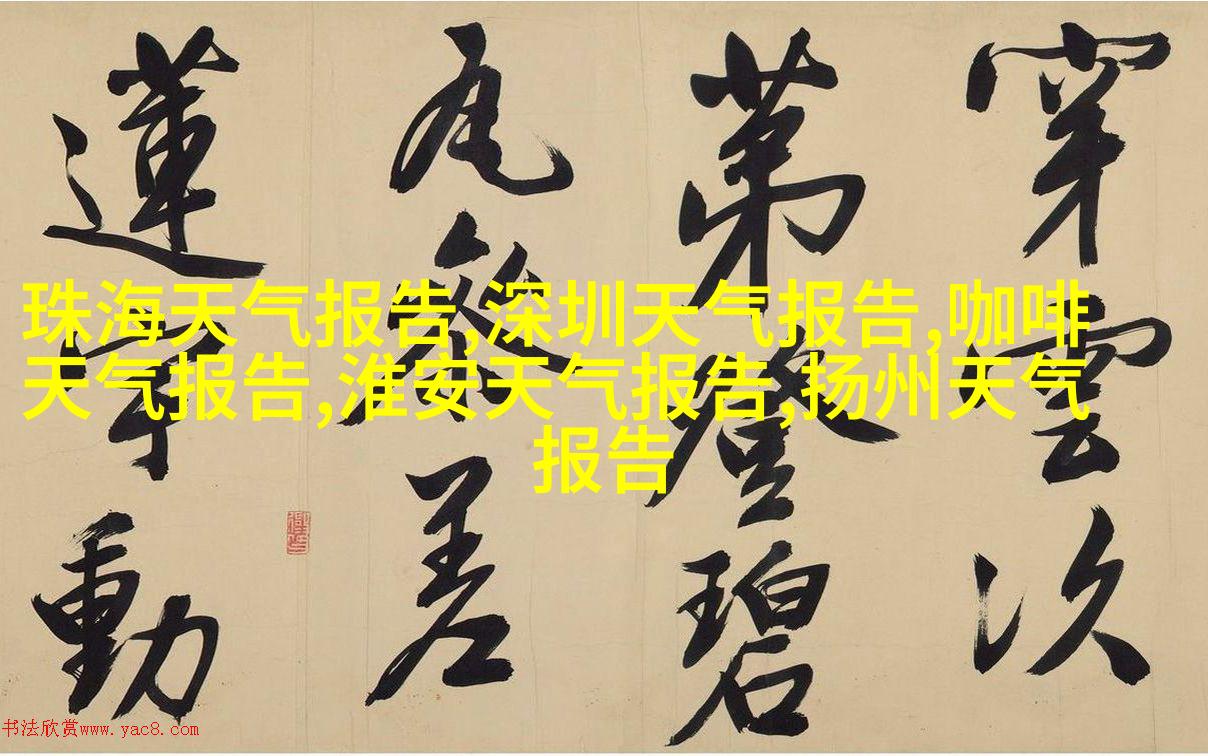 穿雲次
第登碧
瓦參差
蓮宇動
珠海天气报告,深圳天气报告,咖啡
天气报告,淮安天气报告,扬州天气
报告
书法欣赏www.yac8.com